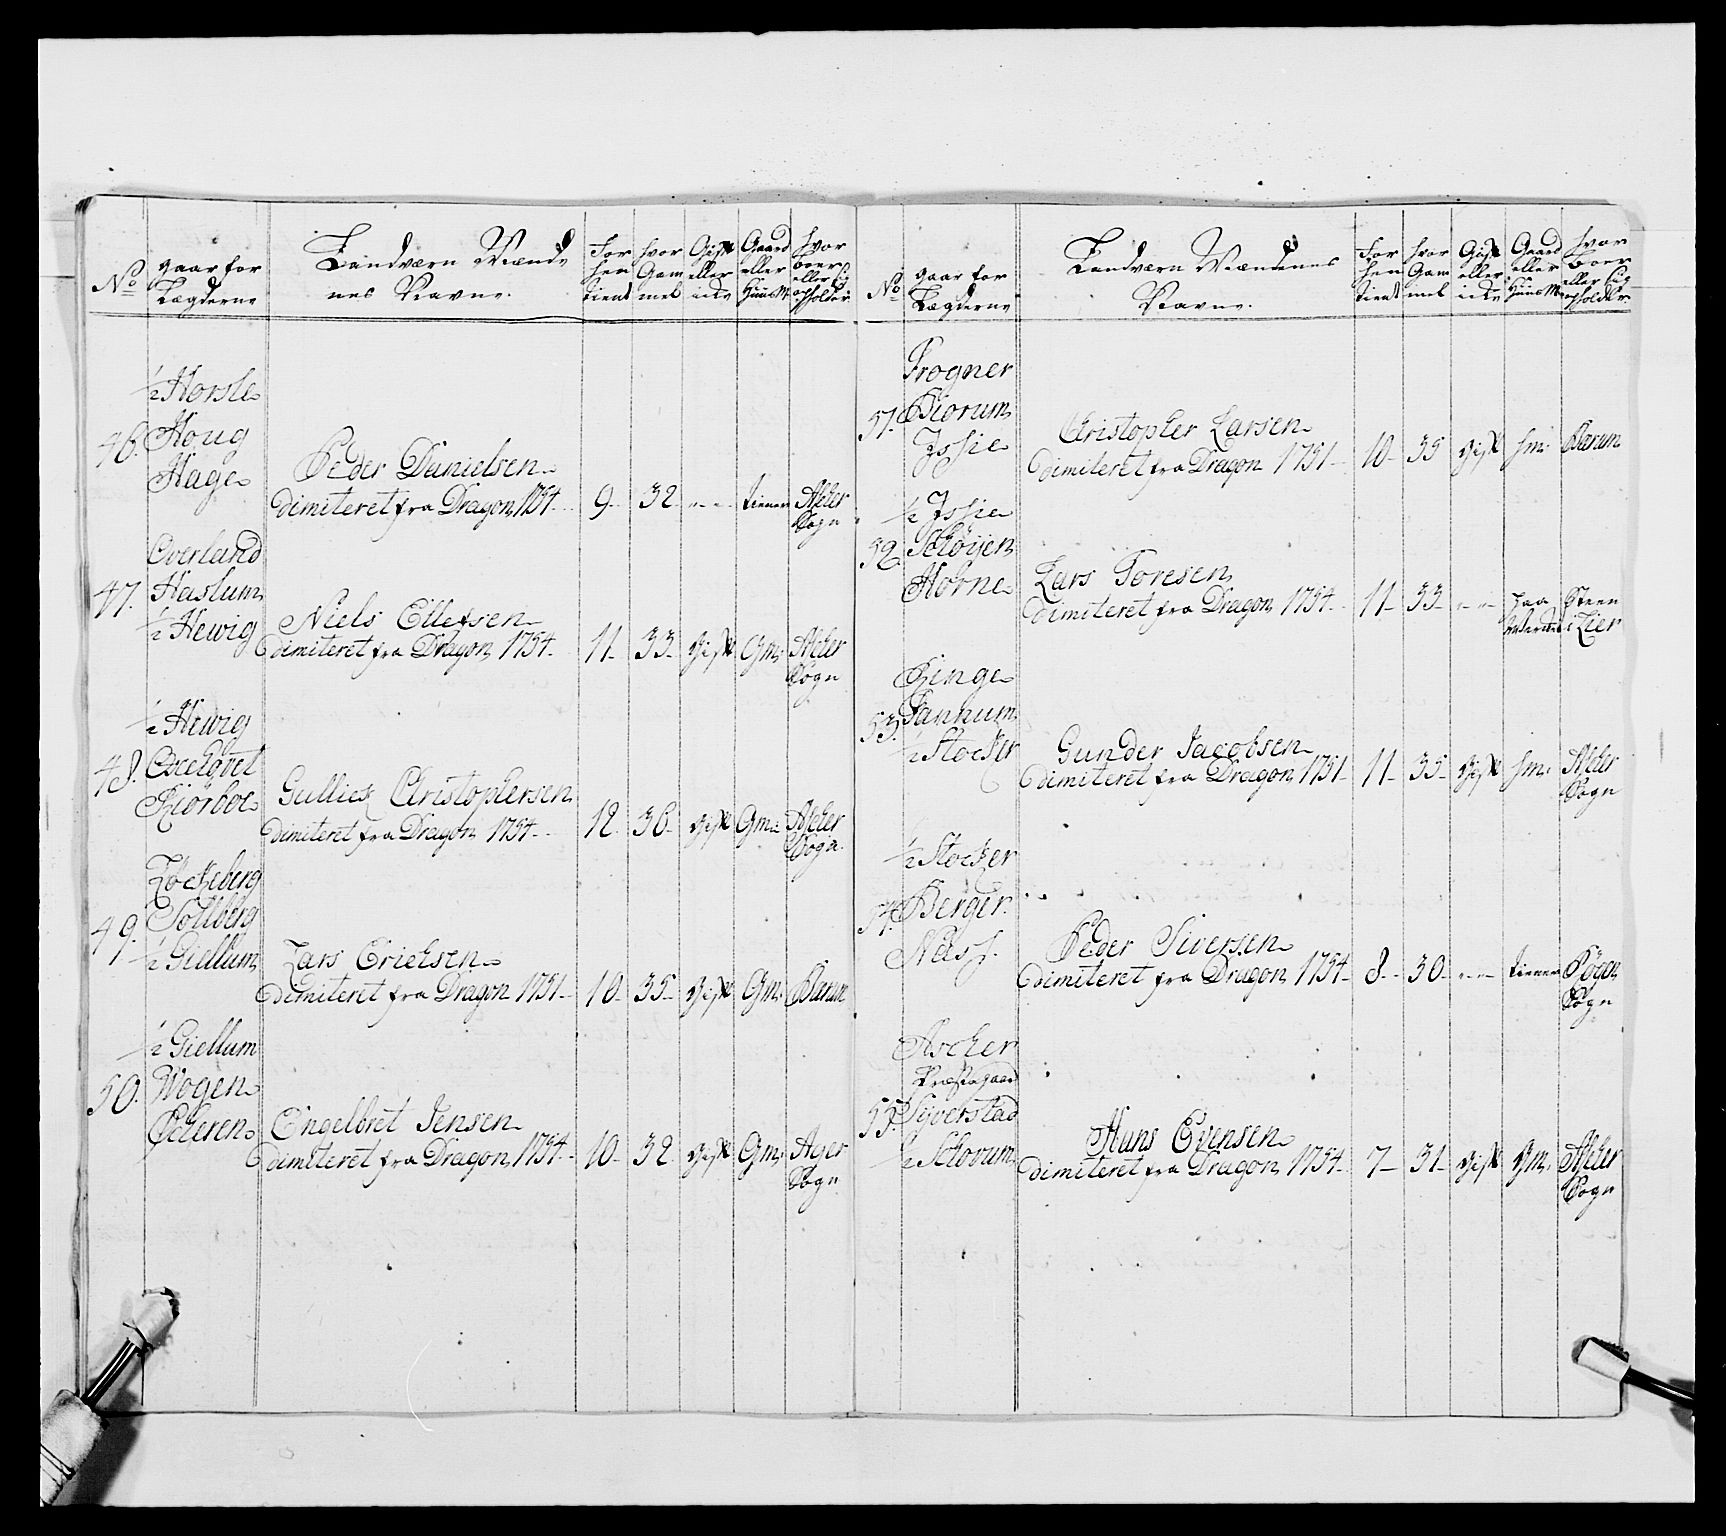 No
gaar for
Lægderne
Landværn Mænde
nes Navne.
For
hen
tient
hvor
Gam
mel
Gift
eller
icke
Gaard
eller
Huus M:
hvor
boer
eller sig
opholder
1/2 Horsle
46. Houg
Hage
Peder Danielsen
dimiteret fra Dragon 1754. 9 32 - - tiener Asker
Sogn
Overland
47. Haslum
1/2 Hewig
Niels Ellefsen
dimiteret fra Dragon 1754. 11 33 Gift Gm: Asker
Sogn
1/2 Hewig
48.
Kiørboe
Gullick Christophersen
dimiteret fra Dragon 1754. 12 36 Gift Gm: Asker
Sogn
Løckeberg
49. Sollberg
1/2 Giellum
Lars Erichsen
dimiteret fra Dragon 1751 10 35 Gift Gm: Barum
1/2 Giellum
50. Wogen
Engelbret Jensen
dimiteret fra Dragon 1754. 10 32 Gift Gm: Ager
Sogn
No
gaar for
Lægderne
Landværn Mændenes
Navne.
For
hen
tient
hvor
Gam
mel
Gift
eller
icke
Gaard
eller
Huus M
hvor
boer
eller sig
opholder
Frogner
51. Biorum
Jssie
Christopher Larsen
dimiteret fra Dragon 1751 10 35 Gift hm: Barum
1/2 Jssie
52. Schøijen
Hovne
Lars Toresen
dimiteret fra Dragon 1754 11 33 - - paa Steen
Lier
Ringe
53. Tanhum
1/2 Stocker
Gunder Jacobsen
dimiteret fra Dragon 1751 11 35 Gift hm: Asker
Sogn
1/2 Stocker
54. Berger
Næss.
Peder Siversen
dimiteret fra Dragon 1754 8 30 - - tiener
Sogn
Ascher
Præstegaard
55. Syverstad
1/2 Schovum
Hans Evensen
dimiteret fra Dragon 1754 7 31 Gift Gm. Asker
Sogn